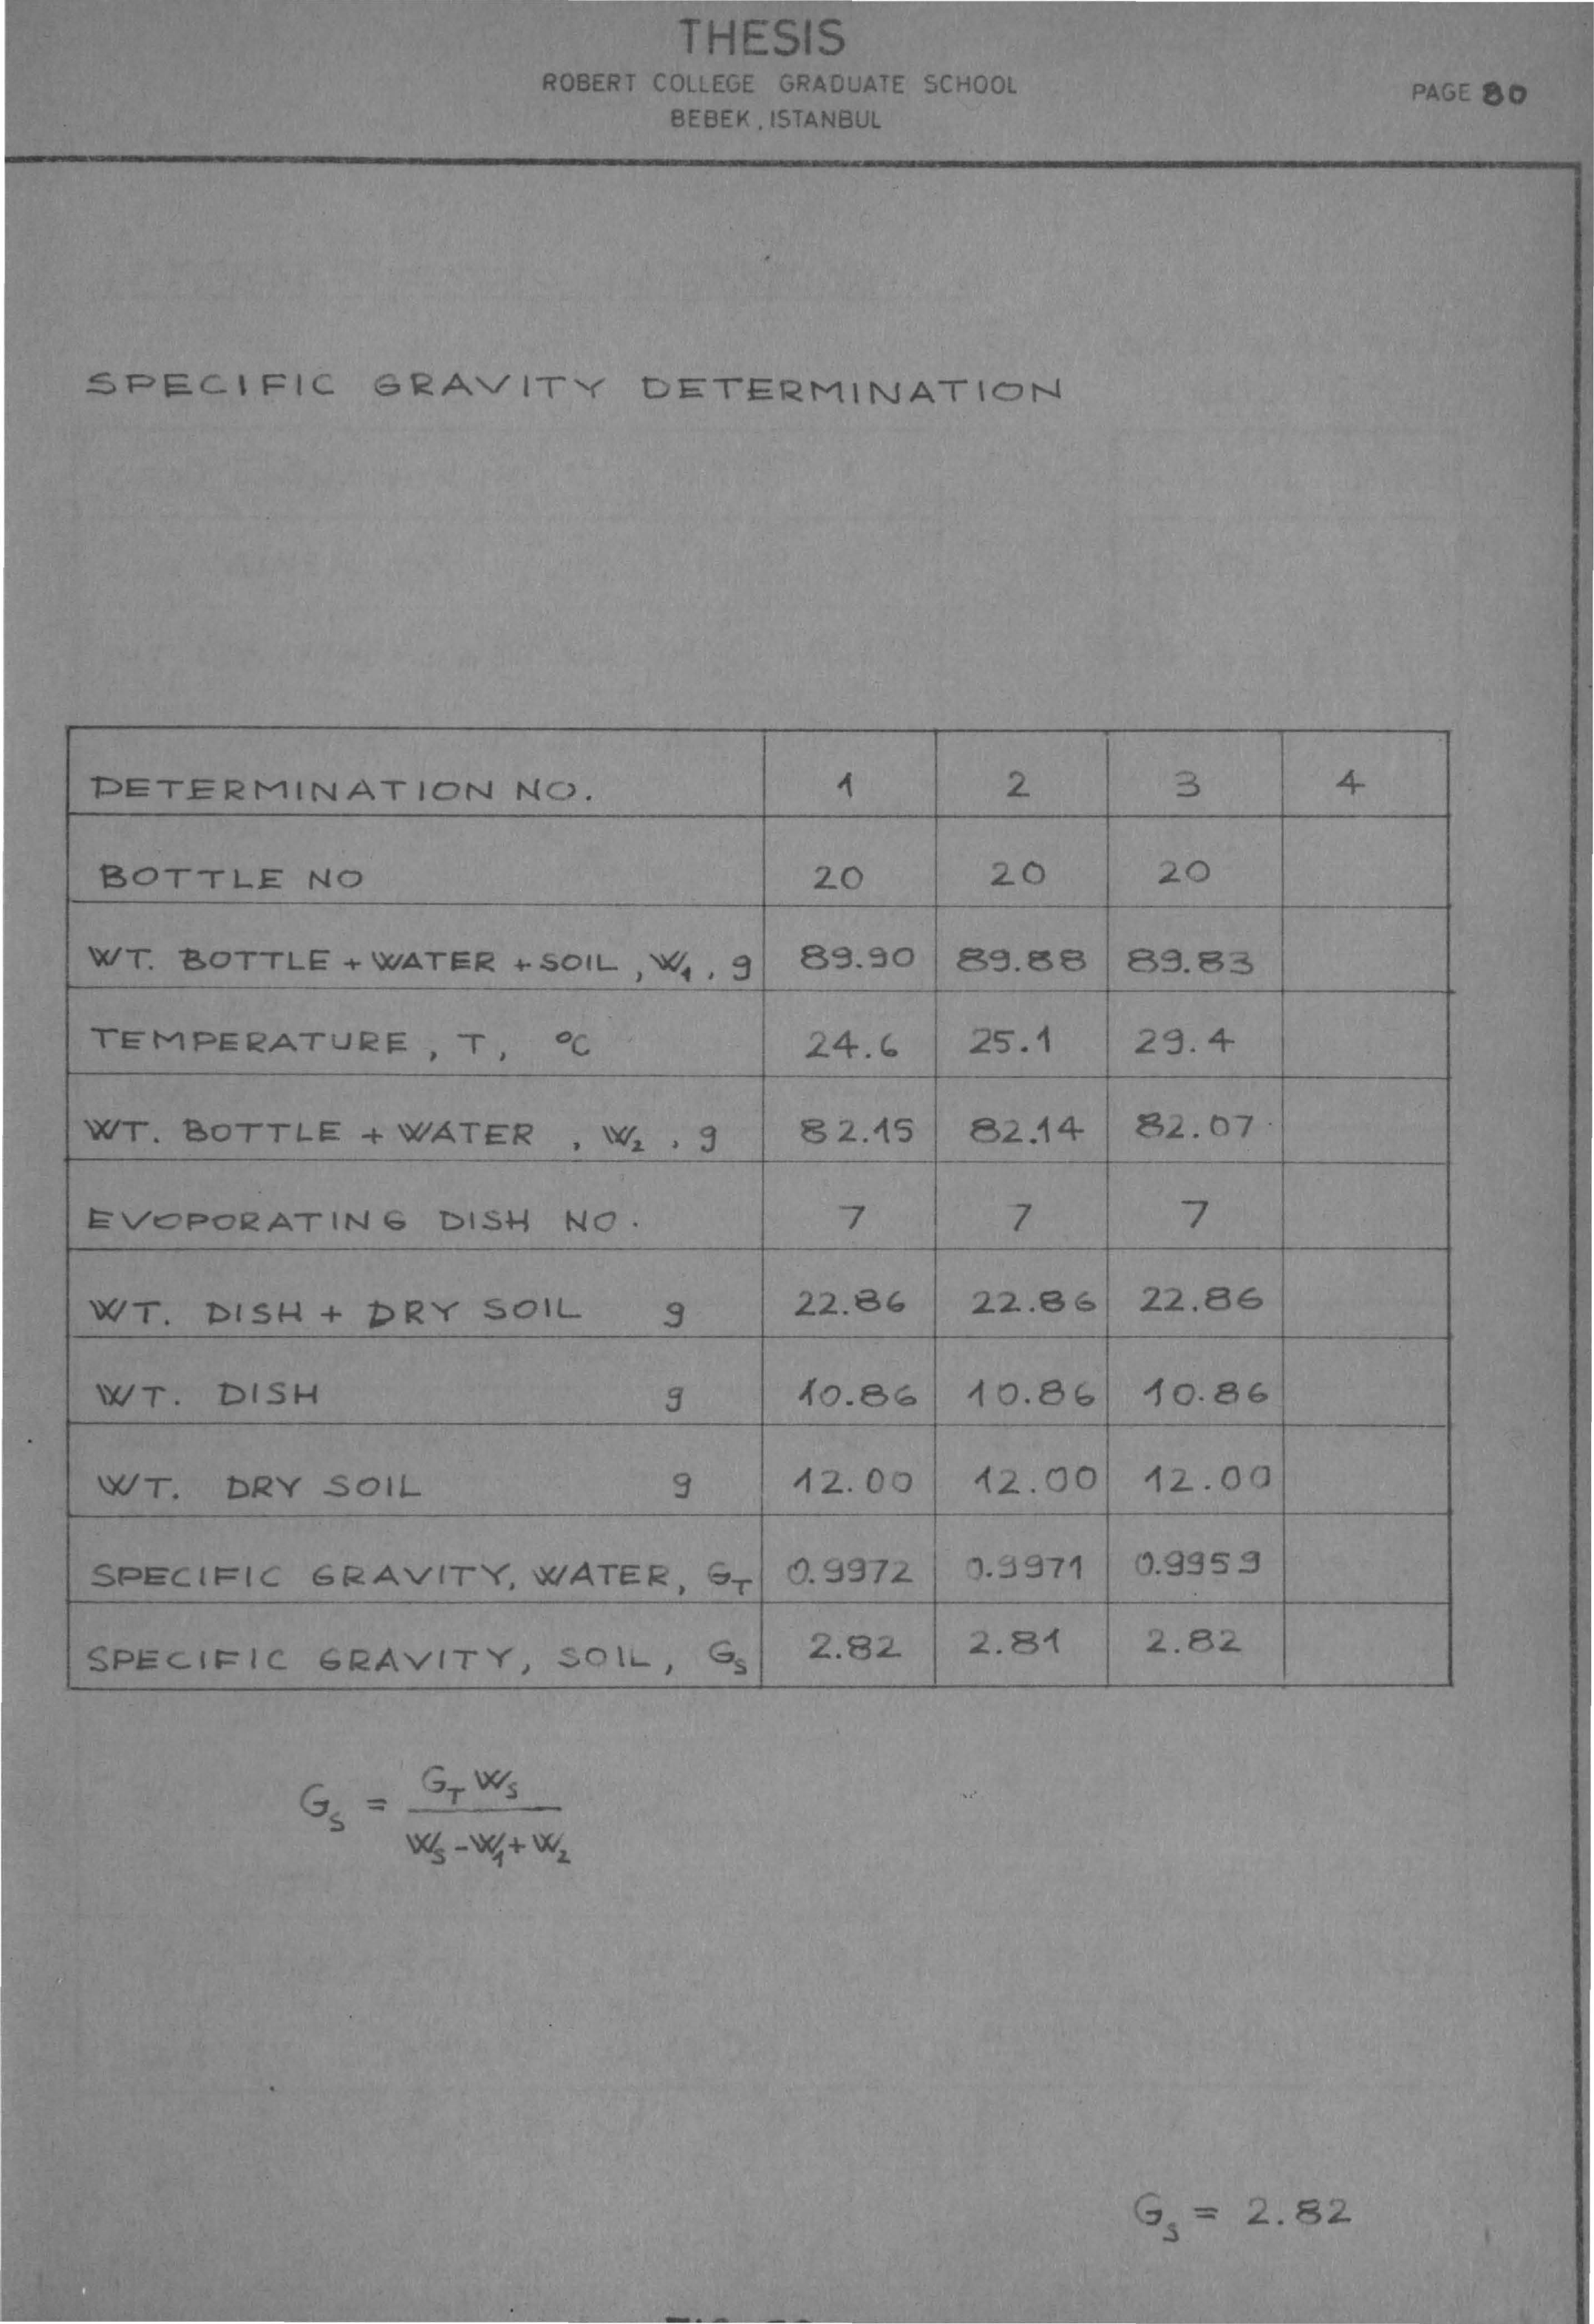 THESIS
ROBERT COLLEGE GRADUATE SCHOOL
BEBEK, ISTANBUL
PAGE 80
SPECIFIC GRAVITY DETERMINATION
DETERMINATION NO. 1 2 3 4
BOTTLE NO 20 20 20
WT. BOTTLE + WATER + SOIL, W₁, g 89.90 89.88 89.83
TEMPERATURE, T, °C 24.6 25.1 29.4
WT. BOTTLE + WATER, W₂, g 82.15 82.14 82.07
EVOPORATING DISH NO. 7 7 7
WT. DISH + DRY SOIL g 22.86 22.86 22.86
WT. DISH g 10.86 10.86 10.86
WT. DRY SOIL g 12.00 12.00 12.00
SPECIFIC GRAVITY, WATER, G_T 0.9972 0.9971 0.9959
SPECIFIC GRAVITY, SOIL, G_S 2.82 2.81 2.82
G_S = G_T W_S
W_S - W₁ + W₂
G_S = 2.82